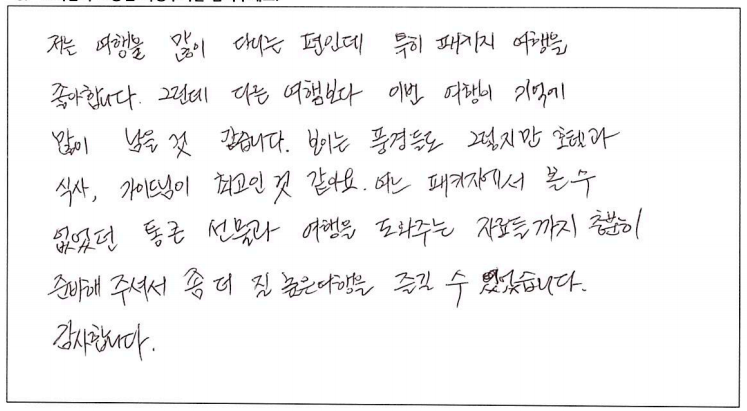 저는 여행을 많이 다니는 편인데 특히 패키지 여행을
좋아합니다. 그런데 다른 여행보다 이번 여행이 기억에
많이 남을 것 같습니다. 보이는 풍경들도 그렇지만 호텔과
식사, 가이드님이 최고인 것 같아요. 어느 패키지에서 볼 수
없었던 통큰 선물과 여행을 도와주는 자료들까지 충분히
준비해 주셔서 좀 더 질 높은 여행을 즐길 수 있었습니다.
감사합니다.